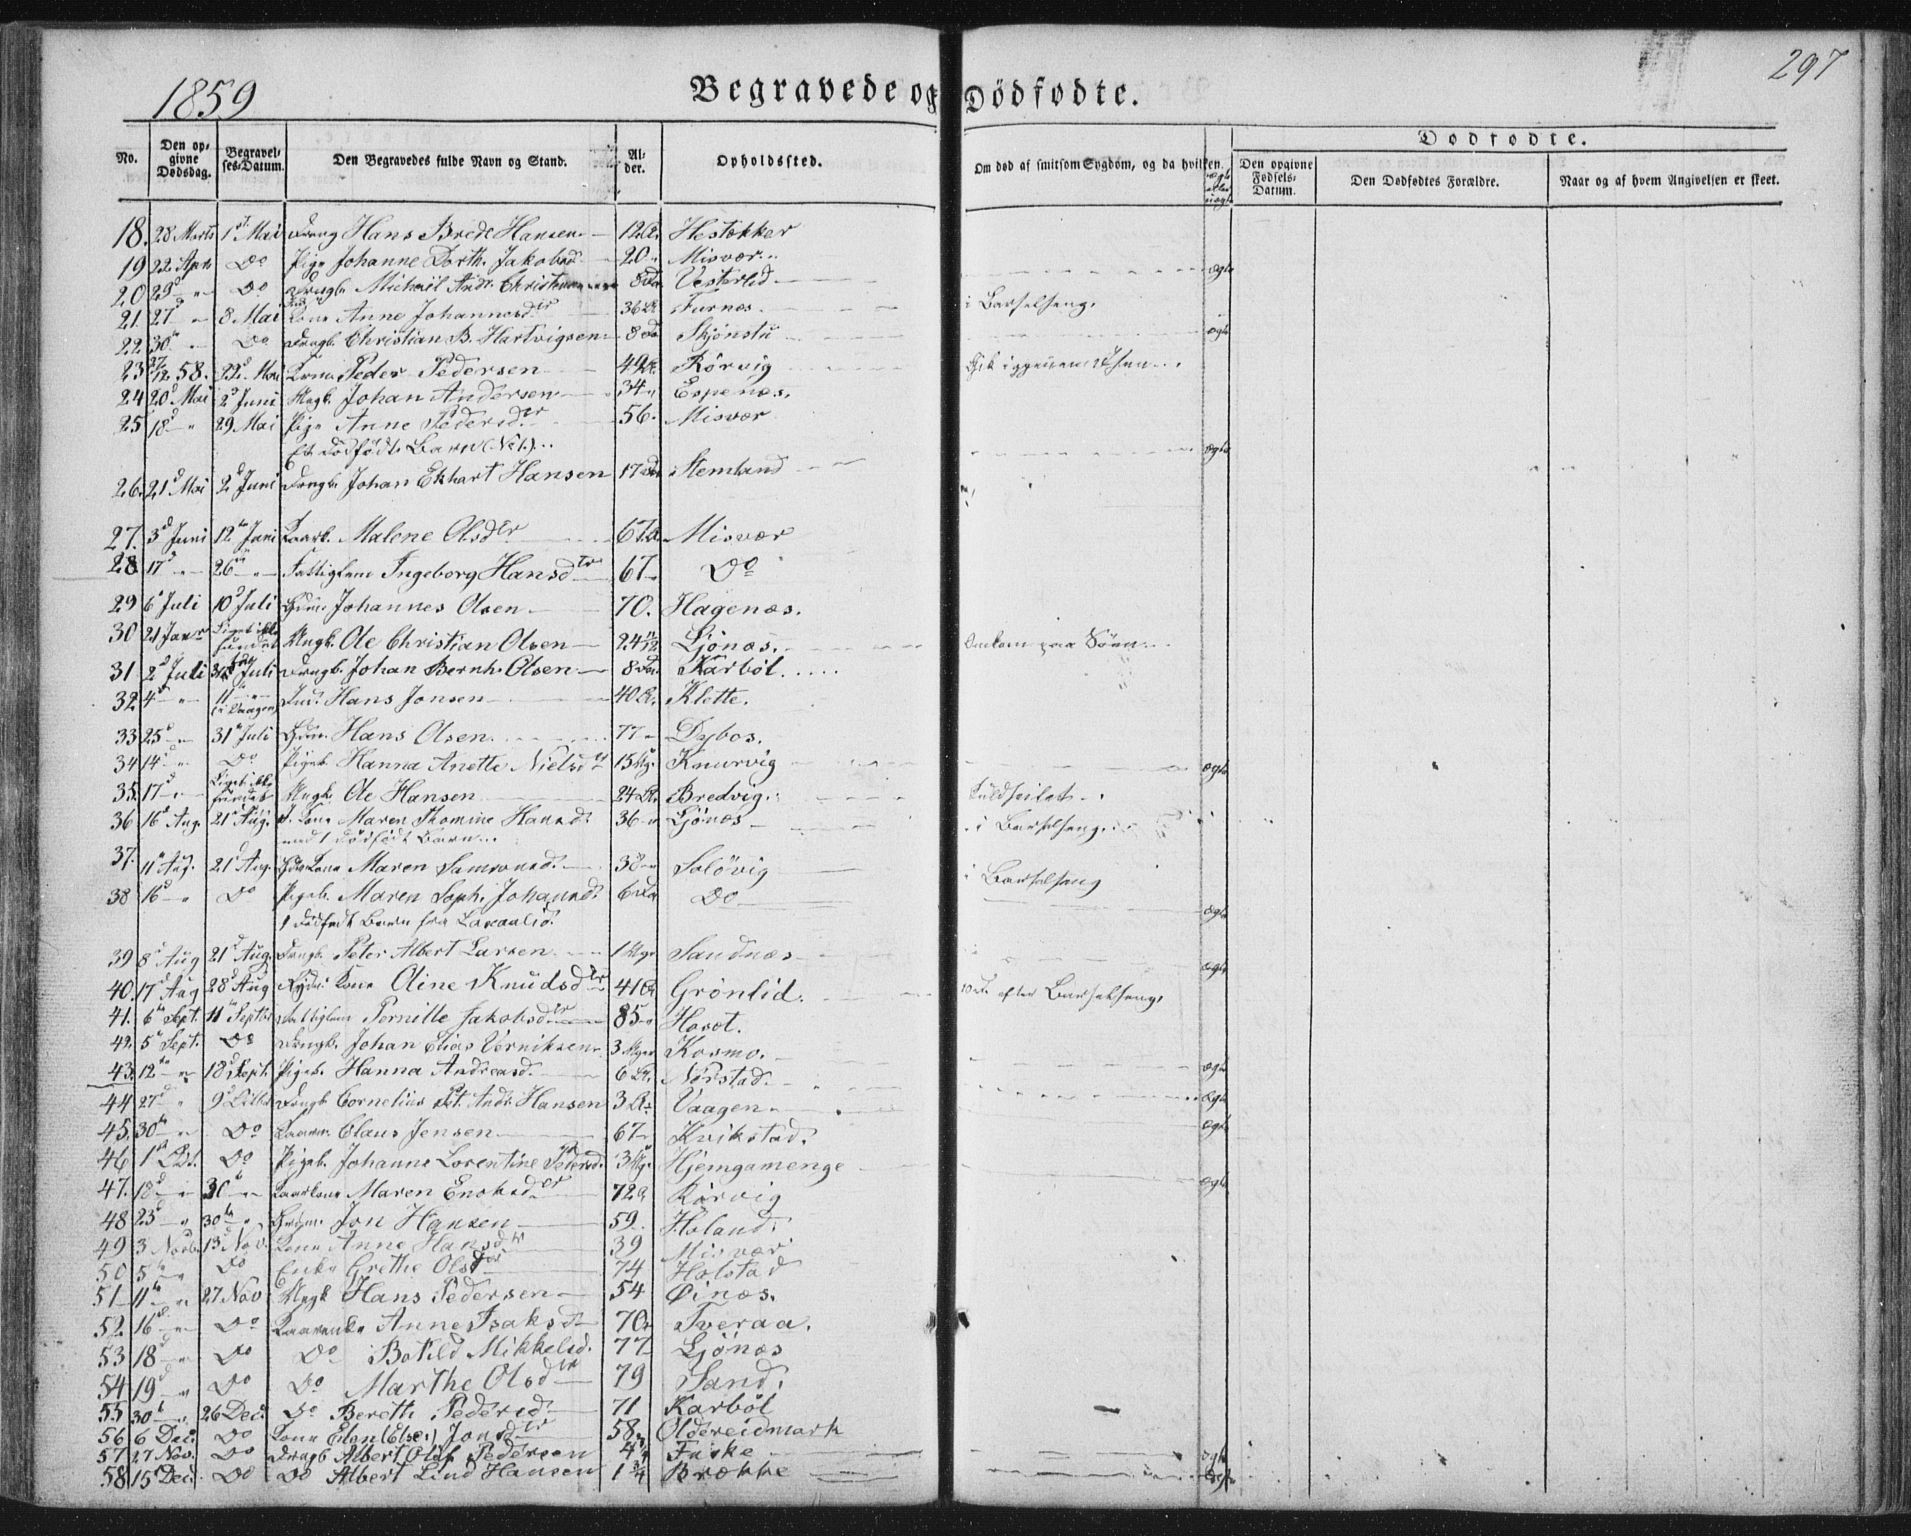 297
1859 Begravede og Dödfödte.
Dödfödte.
No. Den opgivne Dödsdag. Begravelses-Datum. Den Begravedes fulde Navn og Stand. Alder. Opholdssted. Om död af smitsom Sygdom, og da hvilken. ægte eller uægte Den opgivne Födsels-Datum. Den Dödfödtes Forældre. Naar og af hvem Angivelsen er skeet.
18. 28 Marts 1st Mai Dreng Hans Brede Hansen 12 Hestækker
19 22 Apr Do Pige Johanne Dorth. Jakobsd 20 Misvær ægte
20 29 " Do Drengb. Michael Andr. 8 Vesterlid
21. 27 " 8 Mai Kone Anne Johannesdtr 36 Furnes i Barselseng.
22 30 " Do Drengb. Christian B. Hartvigsen 8 Skjönstu ægte
23 27/12 58. 22 Mai Peder Pedersen 49 Rörvig
24 20 Mai 2 Juni Ungk. Johan Andersen 34 Espenæs.
25 18 " 29 Mai Pige Anne Pedersdtr 56 Misvær
Et dödfödt Barn (No 1.) ægte
26. 21 Mai 2 Juni Drengb. Johan Ekhart Hansen 17 Stemland
27. 3 Juni 12 Juni Malene Olsdtr 67 Misvær
28 17 " 26 " Ingeborg Hansdtr 67 Do
29 6 Juli 10 Juli Johannes Olsen 70. Hagenæs.
30 21 Janr Liget ikke fundet Ungk. Ole Christian Olsen 24 11/12 Ljönæs. Omkom paa Söen
31 2 Juli Juli Drengb. Johan Bernh. Olsen 8 Karböl
32 4 " 11 (i Vaagen) Ind. Hans Jonsen 40 Klette.
33 25 " 31 Juli Hans Olsen 77 Dybos.
34 14 " Do Pigeb. Hanna Anette Nielsdtr 15 Knurvig ægte
35. 17 " Liget ikke fundet Ungk. Ole Hansen 24 Bredvig. Kuldseilet
36 16 Aug. 21 Aug. Kone Maren Thomine Hansd. 36 Ljönes i Barselseng.
med 1 dödfödt Barn
37. 11 Aug. 21 Aug. Kone Maren Samsonsd. 38 Solövig i Barselseng
38 16 " Do Pigeb. Maren Soph. Johansd. 6 Do ægte
1 dödfödt Barn fra
39 8 Aug 21 Aug. Drengb. Peter Albert Larsen 1 Sandnæs ægte
40. 17 Aug 28 Aug Kone Oline Knudsdtr 41 Grönlid. efter Barselseng.
41. 6 Sept. 11 Septbr Pernille Jakobsdtr 85 Hovet.
42. 5 Sept. Do Drengb. Johan Elias Verniksen 3 Kosmo.
43. 12 " 18 Sept. Pigeb. Hanna Andreasd. 6 Nörstad. ægte
44 27 " 9 Drengb. Cornelius Pet. Andr. Hansen 3 Vaagen ægte
45. 30 " Do Claus Jensen 67 Kvikstad. ægte
46 1st Oct. Do Pigeb. Johanne Lorentine Pedersd. 3 Hjemgamenge
47. 18 " 30 " Maren Enoksdtr 72 Rörvig ægte
48 23 " 30 " Jon Hansen 59. Holand.
49 3 Novb. 13 Nov. Kone Anne Hansdtr 39 Misvær
50 5 " Do Enke Grethe Olsdtr 74 Holstad
51 11 " 27 Nov Ungk Hans Pedersen 54 Öinæs.
52 16 " Do Anne Isaksd 70 Tveraa.
53 18 " Do Do Botild Mikkelsd. 77 Ljönæs
54 19 " Do Do Marthe Olsdtr 79 Sand.
55 30 " 26 Dec. Do Berethe Pedersd 71 Karböl
56 6 Dec. Do Kone Elen (Else) Jonsdtr 58. Oldereidmark
57 27 Nov. Do Drengb Albert Olaf Pedersen 4 Fuske ægte
58 15 Dec. Do Do Albert Lind Hansen 1 3/4 Brække